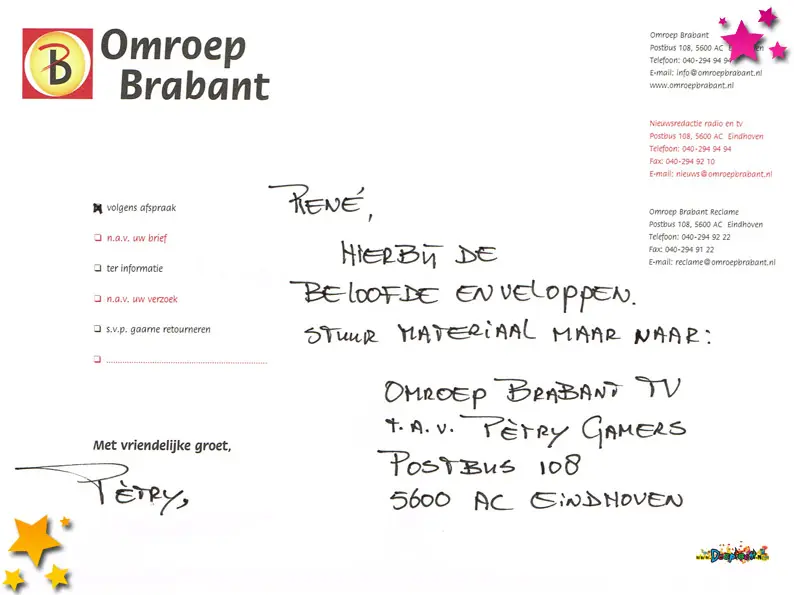 Omroep
Brabant
Omroep Brabant
Postbus 108, 5600 AC
Telefoon: 040-294 94 94
E-mail: info@omroepbrabant.nl
www.omroepbrabant.nl
Nieuwsredactie radio en tv
Postbus 108, 5600 AC Eindhoven
Telefoon: 040-294 94 94
Fax: 040-294 92 10
E-mail: nieuws@omroepbrabant.nl
Omroep Brabant Reclame
Postbus 108, 5600 AC Eindhoven
Telefoon: 040-294 92 22
Fax: 040-294 91 22
E-mail: reclame@omroepbrabant.nl
volgens afspraak
n.a.v. uw brief
ter informatie
n.a.v. uw verzoek
s.v.p. gaarne retourneren
RENÉ,
HIERBIJ DE
BELOOFDE ENVELOPPEN.
STUUR MATERIAAL MAAR NAAR:
OMROEP BRABANT TV
t.a.v. PÈTRY GAMERS
POSTBUS 108
5600 AC EINDHOVEN
Met vriendelijke groet,
PÈTRY,